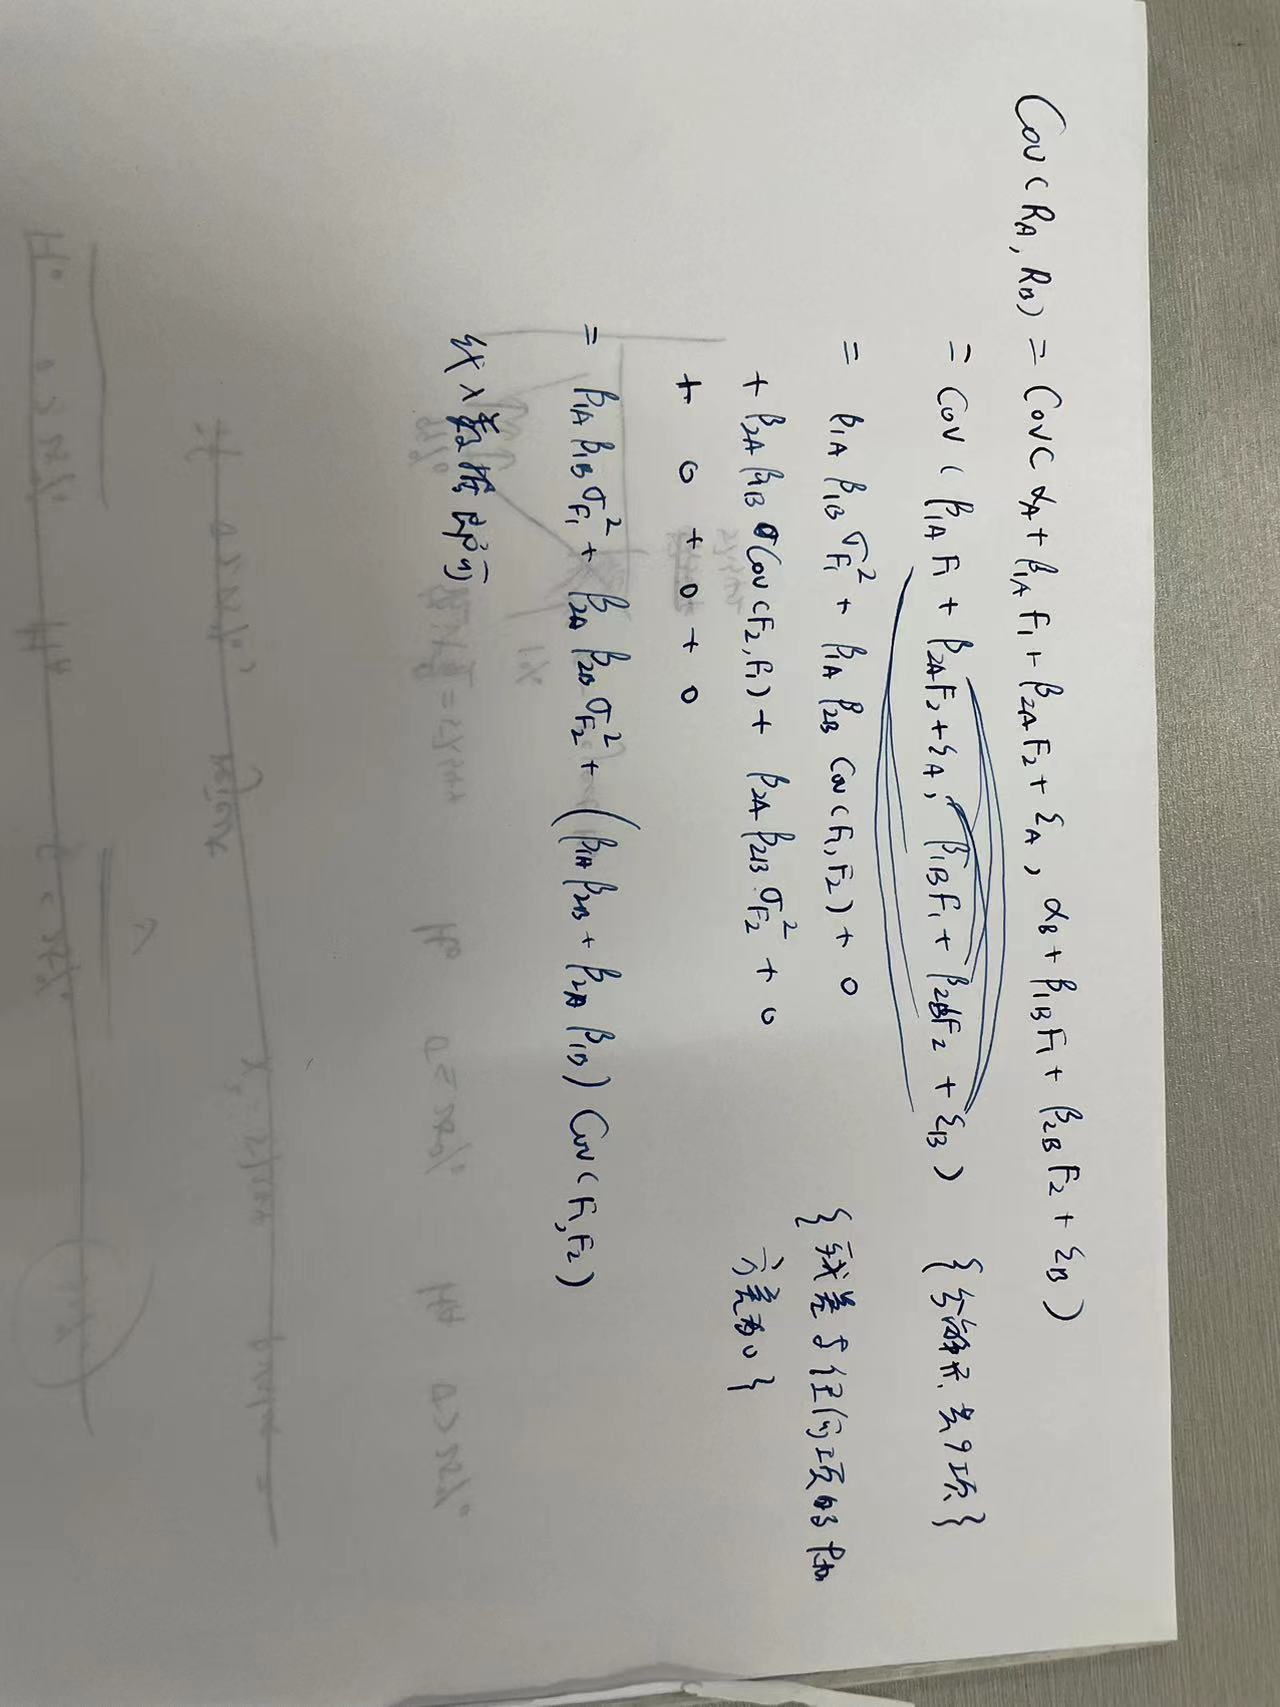 Cov(RA, RB) = Cov(αA + β1A F1 + β2A F2 + εA, αB + β1B F1 + β2B F2 + εB)
= Cov(β1A F1 + β2A F2 + εA, β1B F1 + β2B F2 + εB) {分解开,共9项}
= β1A β1B σF1² + β1A β2B Cov(F1, F2) + 0 {残差与任何项的协
+ β2A β1B Cov(F2, F1) + β2A β2B σF2² + 0 方差为0}
+ 0 + 0 + 0
= β1A β1B σF1² + β2A β2B σF2² + (β1A β2B + β2A β1B) Cov(F1, F2)
代入数据即可